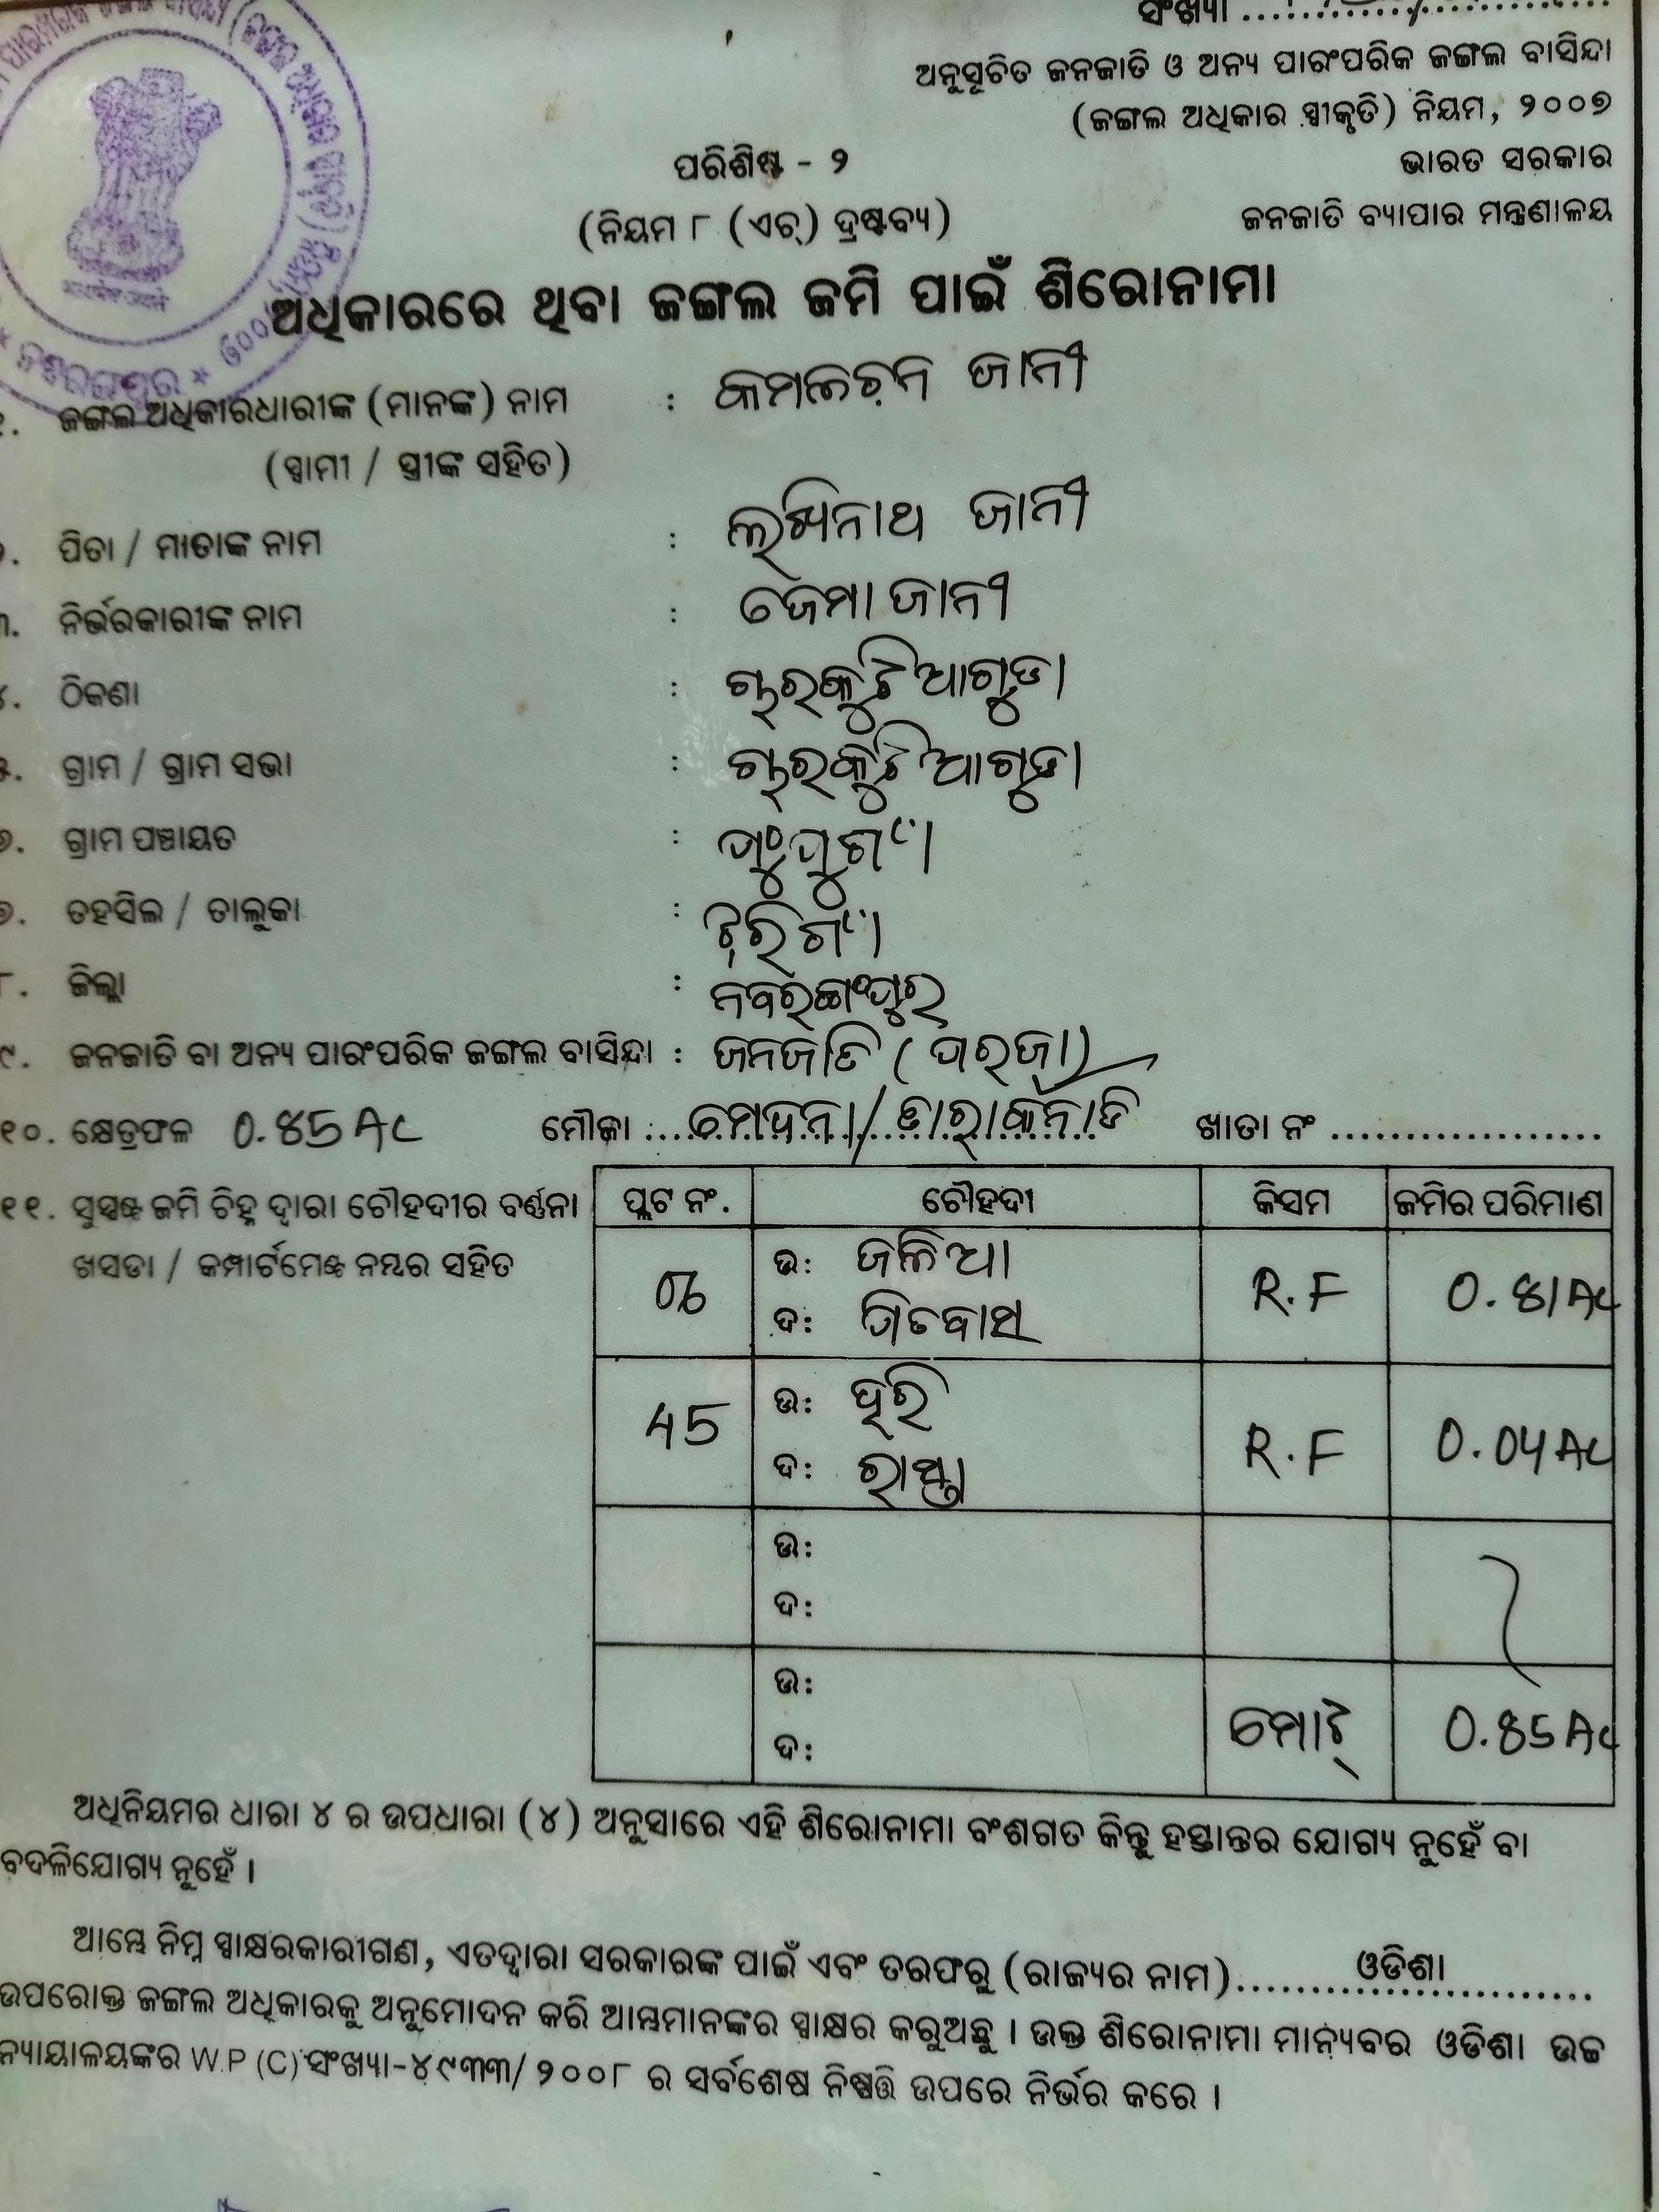 ସଂଖ୍ୟା
ଅନୁସୂଚିତ ଜନଜାତି ଓ ଅନ୍ୟ ପାରଂପରିକ ଜଙ୍ଗଲ ବାସିନ୍ଦା
(ଜଙ୍ଗଲ ଅଧିକାର ସ୍ୱୀକୃତି) ନିୟମ, ୨୦୦୭
ପରିଶିଷ୍ଟ - ୨
ଭାରତ ସରକାର
(ନିୟମ ୮ (ଏଚ୍) ଦ୍ରଷ୍ଟବ୍ୟ)
ଜନଜାତି ବ୍ୟାପାର ମନ୍ତ୍ରଣାଳୟ
ଅଧିକାରରେ ଥିବା ଜଙ୍ଗଲ ଜମି ପାଇଁ ଶିରୋନାମା
ଜଙ୍ଗଲ ଅଧିକାରଧାରୀଙ୍କ (ମାନଙ୍କ) ନାମ : ଜାନୀ
(ସ୍ୱାମୀ / ସ୍ତ୍ରୀଙ୍କ ସହିତ)
ପିତା / ମାତାଙ୍କ ନାମ : ଲଖିନାଥ ଜାନୀ
୩. ନିର୍ଭରକାରୀଙ୍କ ନାମ : ଜେମା ଜାନୀ
୪. ଠିକଣା :
୫. ଗ୍ରାମ / ଗ୍ରାମ ସଭା :
୬. ଗ୍ରାମ ପଞ୍ଚାୟତ :
୭. ତହସିଲ / ତାଲୁକା : ଝରିଗାଁ
୮. ଜିଲ୍ଲା : ନବରଙ୍ଗପୁର
୯. ଜନଜାତି ବା ଅନ୍ୟ ପାରଂପରିକ ଜଙ୍ଗଲ ବାସିନ୍ଦା : ଜନଜାତି (ପରଜା)
୧୦. କ୍ଷେତ୍ରଫଳ 0.85 Ac ମୌଜା ଖାତା ନଂ
୧୧. ସୁସ୍ପଷ୍ଟ ଜମି ଚିହ୍ନ ଦ୍ୱାରା ଚୌହଦୀର ବର୍ଣ୍ଣନା
ଖସଡା / କମ୍ପାର୍ଟମେଣ୍ଟ ନମ୍ବର ସହିତ
ପ୍ଲଟ ନଂ. ଚୌହଦୀ କିସମ ଜମିର ପରିମାଣ
ଉ: ଜଳିଆ
R.F 0.81 Ac
ଦ:
ଉ: ହରି
45 R.F 0.04 Ac
ଦ: ରାସ୍ତା
ଉ:
ଦ:
ଉ:
ମୋଟ୍ 0.85 Ac
ଦ:
ଅଧିନିୟମର ଧାରା ୪ ର ଉପଧାରା (୪) ଅନୁସାରେ ଏହି ଶିରୋନାମା ବଂଶଗତ କିନ୍ତୁ ହସ୍ତାନ୍ତର ଯୋଗ୍ୟ ନୁହେଁ ବା
ବଦଳିଯୋଗ୍ୟ ନୁହେଁ ।
ଆମ୍ଭେ ନିମ୍ନ ସ୍ୱାକ୍ଷରକାରୀଗଣ, ଏତଦ୍ଦ୍ୱାରା ସରକାରଙ୍କ ପାଇଁ ଏବଂ ତରଫରୁ (ରାଜ୍ୟର ନାମ) ଓଡିଶା
ଉପରୋକ୍ତ ଜଙ୍ଗଲ ଅଧିକାରକୁ ଅନୁମୋଦନ କରି ଆମ୍ଭମାନଙ୍କର ସ୍ୱାକ୍ଷର କରୁଅଛୁ । ଉକ୍ତ ଶିରୋନାମା ମାନ୍ୟବର ଓଡିଶା ଉଚ୍ଚ
ନ୍ୟାୟାଳୟଙ୍କର W.P (C) ସଂଖ୍ୟା-୪୯୩୩/୨୦୦୮ ର ସର୍ବଶେଷ ନିଷ୍ପତ୍ତି ଉପରେ ନିର୍ଭର କରେ ।